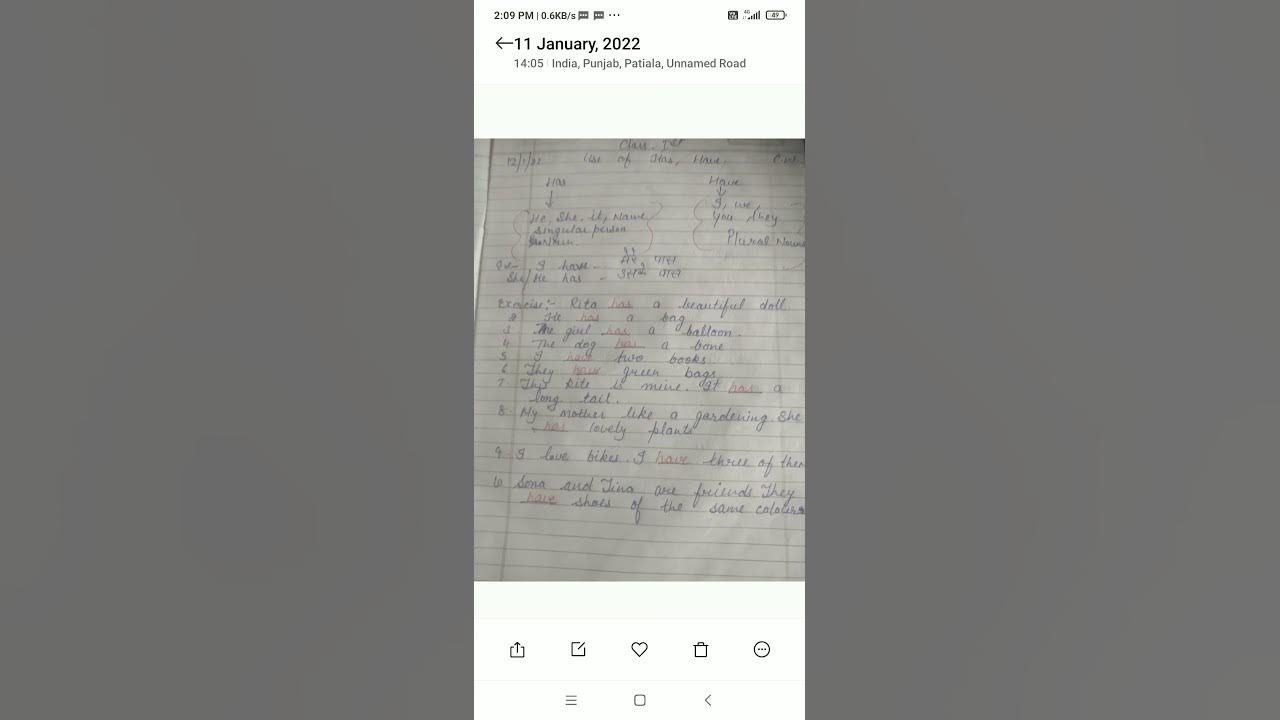 2:09 PM | 0.6KB/s ...
4G
49
11 January, 2022
14:05 | India, Punjab, Patiala, Unnamed Road
Class - Ist
12/1/22 Use of Has, Have. C.W.
Has Have
He, She, it, Name I, we,
singular person You They
Plural Nouns
Ex- I have - मेरे पास
She/He has - उसके पास
Exercise:- Rita has a beautiful doll
2 He has a bag
3 The girl has a balloon.
4 The dog has a bone
5 I have two books.
6 They have green bags
7 This kite is mine. It has a
long tail.
8. My mother like a gardening. She
has lovely plants
9. I love bikes. I have three of them
10 Sona and Tina are friends They
have shoes of the same colours